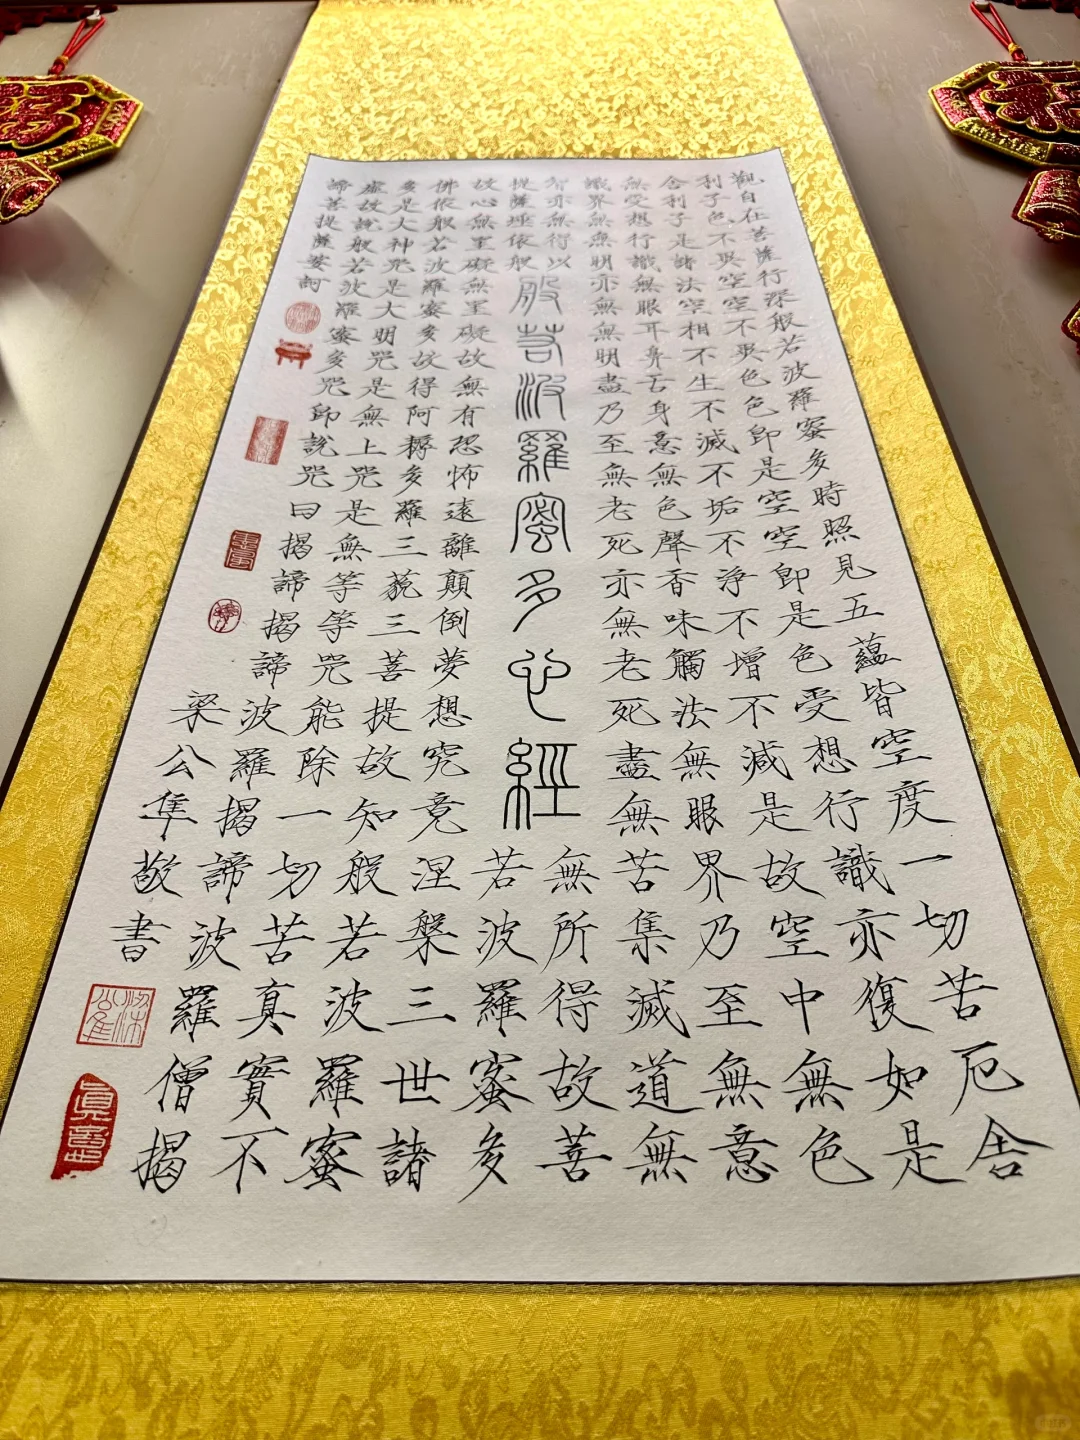 觀自在菩薩行深般若波羅蜜多時照見五蘊皆空度一切苦厄舍
利子色不異空空不異色色即是空空即是色受想行識亦復如是
舍利子是諸法空相不生不滅不垢不淨不增不減是故空中無色
無受想行識無眼耳鼻舌身意無色聲香味觸法無眼界乃至無意
識界無無明亦無無明盡乃至無老死亦無老死盡無苦集滅道無
智亦無得以無所得故菩
提薩埵依般若波羅蜜多
般若波羅蜜多心經
故心無罣礙無罣礙故無有恐怖遠離顛倒夢想究竟涅槃三世諸
佛依般若波羅蜜多故得阿耨多羅三藐三菩提故知般若波羅蜜
多是大神咒是大明咒是無上咒是無等等咒能除一切苦真實不
虛故說般若波羅蜜多咒即說咒曰揭諦揭諦波羅揭諦波羅僧揭
諦菩提薩婆訶
梁公隼敬書
梁公隼